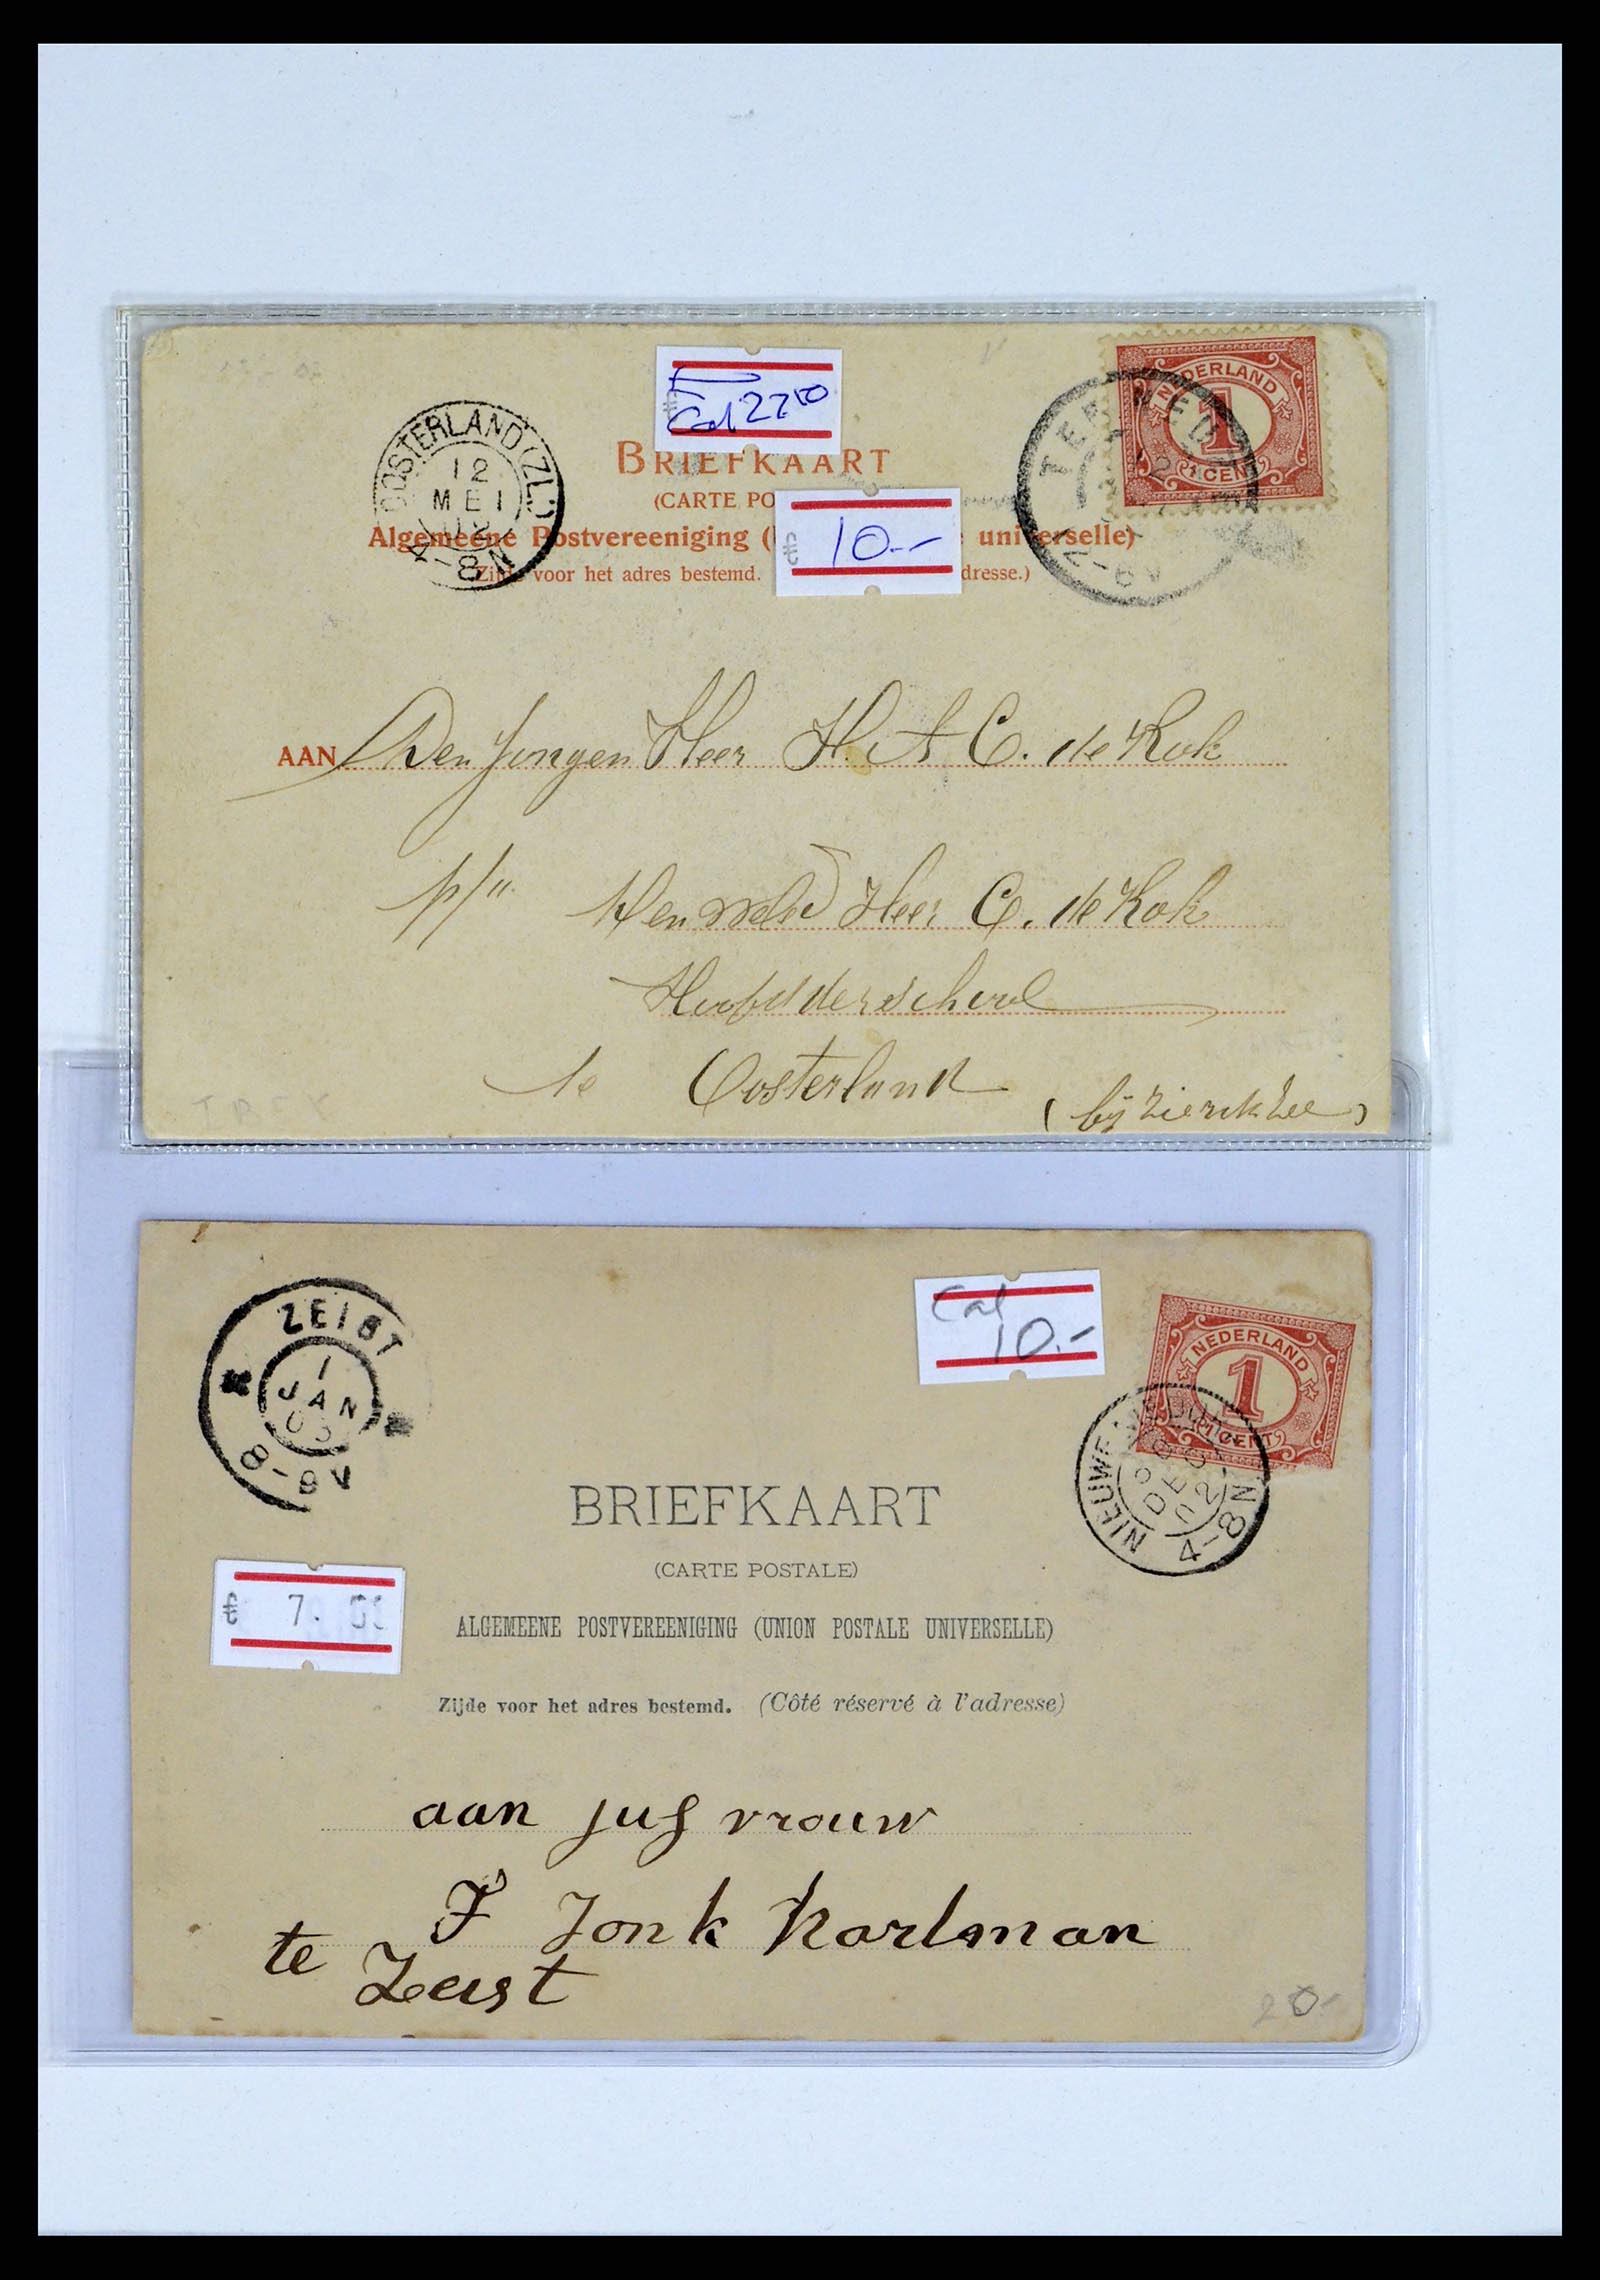 Cat 22⁵⁰
NEDERLAND
1
1 CENT
OOSTERLAND (ZL:)
12
MEI
4-8N
BRIEFKAART
(CARTE PO
Algemeene Postvereeniging ( universelle)
10.--
Zijde voor het adres bestemd. dresse.)
AAN Den Jongen Heer H. A C. de Kok
p/a Den WelEd Heer C. de Kok
Hoofd der School
te Oosterland
(bij Zierikzee)
ZEIST
1
JAN
03
8-9V
Cat
10.-
NEDERLAND
1
1 CENT
NIEUWE
30
DEC
02
4-8N
BRIEFKAART
(CARTE POSTALE)
€ 7.00
ALGEMEENE POSTVEREENIGING (UNION POSTALE UNIVERSELLE)
Zijde voor het adres bestemd. (Côté réservé à l'adresse)
aan juf vrouw
F Jonk Karlman
te Zeist
20.-